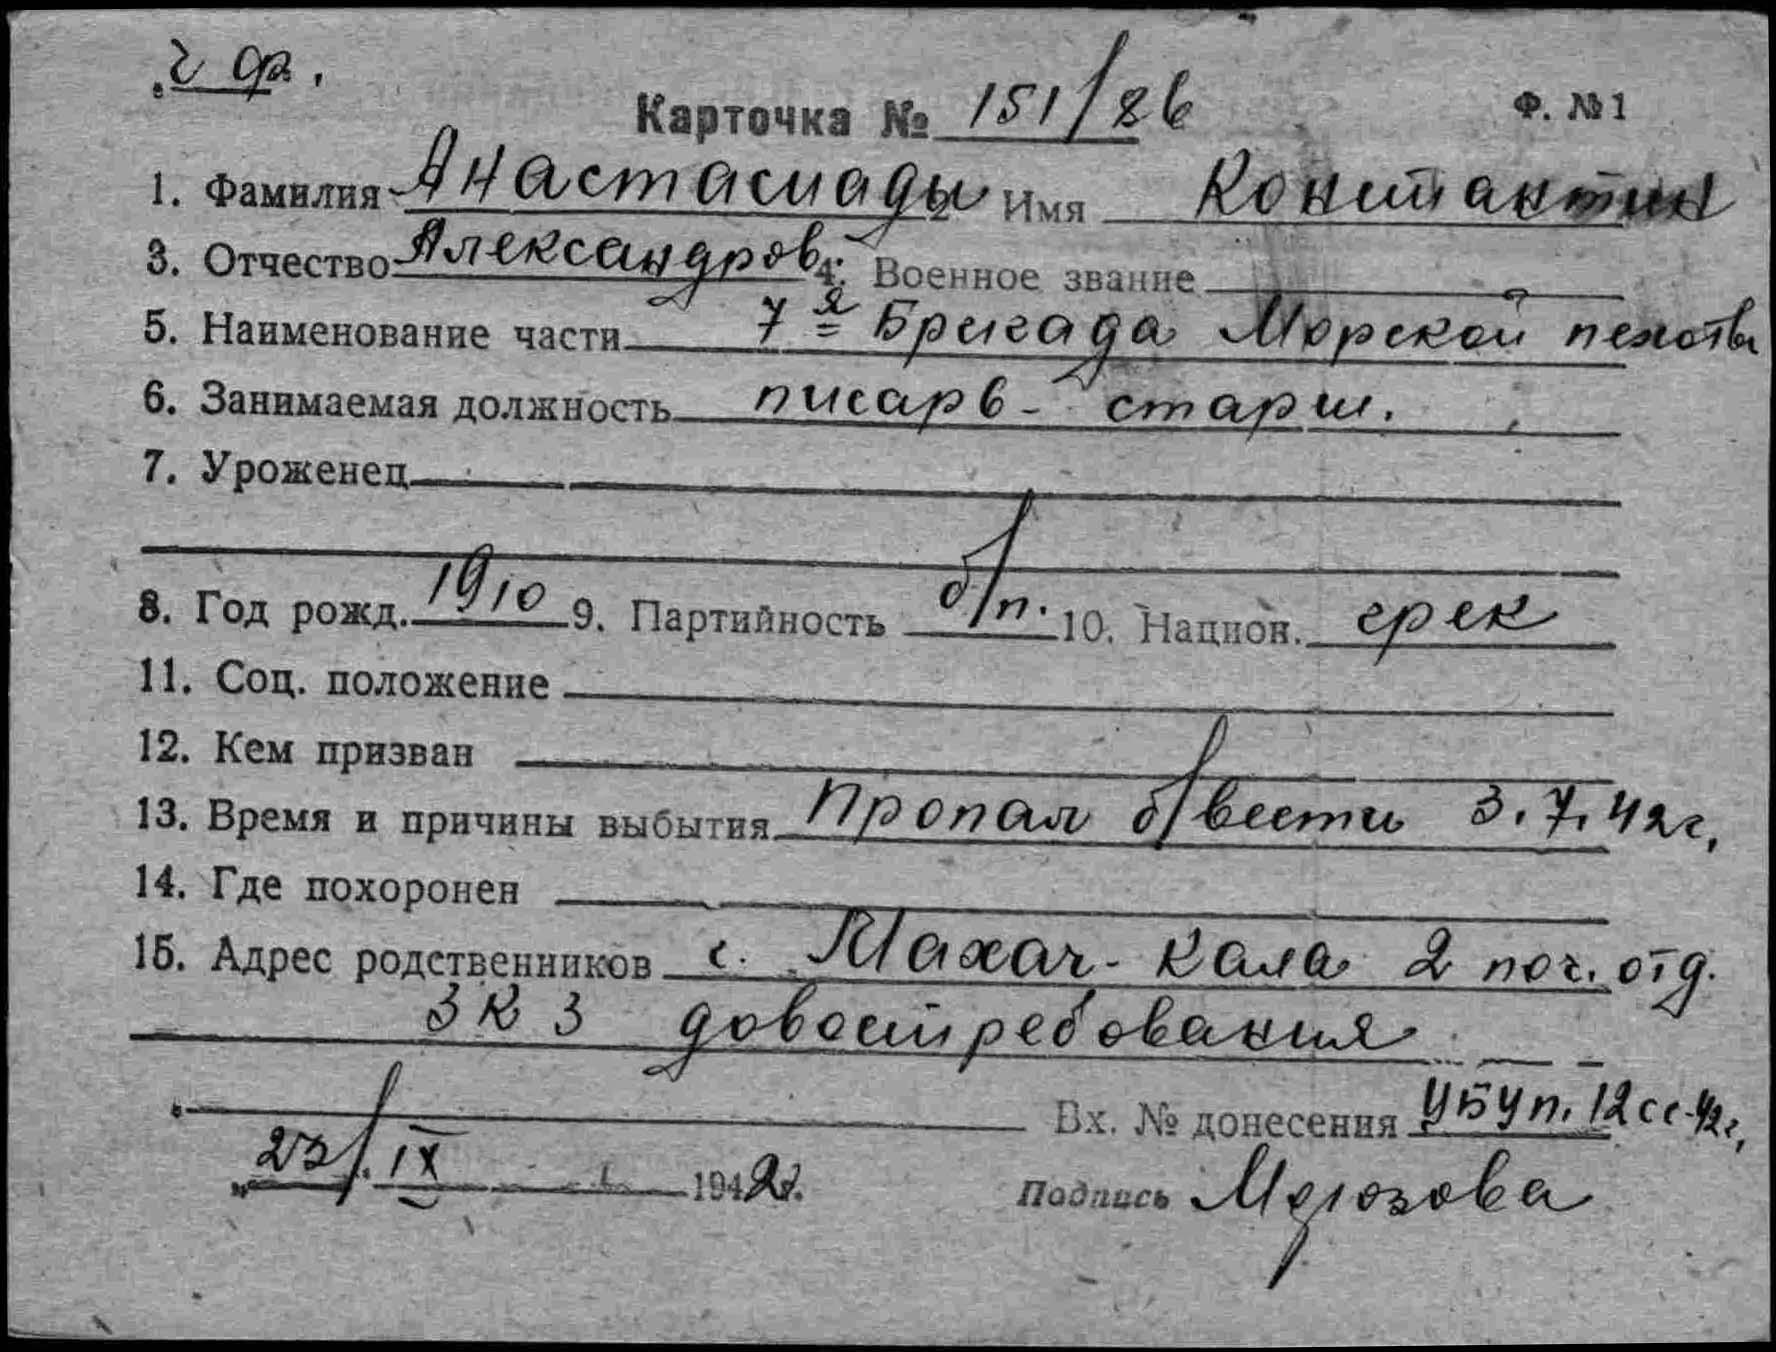 ч ф.
Карточка № 151/86 Ф. №1
1. Фамилия Анастасиады 2. Имя Константин
3. Отчество Александров. 4. Военное звание
5. Наименование части 7я Бригада Морской пехоты
6. Занимаемая должность писарь - старш.
7. Уроженец
8. Год рожд. 1910 9. Партийность б/п. 10. Национ. грек
11. Соц. положение
12. Кем призван
13. Время и причины выбытия Пропал б/вести 3.7.42г.
14. Где похоронен
15. Адрес родственников г. Махач-Кала 2 поч. отд.
ЗКЗ довостребования
Вх. № донесения УБУп. 12сс-42г.
„23/IX 1942г. Подпись Морозова